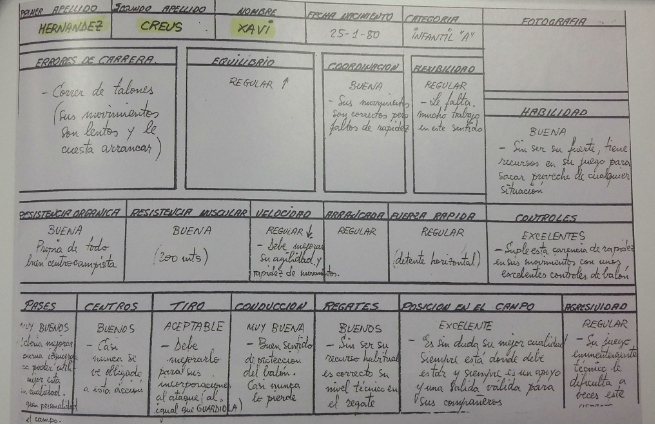 PRIMER APELLIDO
SEGUNDO APELLIDO
NOMBRE
FECHA NACIMIENTO
CATEGORIA
FOTOGRAFIA
HERNANDEZ
CREUS
XAVI
25-1-80
INFANTIL "A"
ERRORES DE CARRERA
- Correr de talones
(sus movimientos
son lentos y le
cuesta arrancar)
EQUILIBRIO
REGULAR ↑
COORDINACION
BUENA
- Sus movimientos
son correctos pero
faltos de rapidez
FLEXIBILIDAD
REGULAR
- Le falta
mucho trabajo
en este sentido
HABILIDAD
BUENA
- Sin ser su fuerte, tiene
recursos en su juego para
sacar provecho de cualquier
situación
RESISTENCIA ORGANICA
BUENA
Propia de todo
buen centrocampista
RESISTENCIA MUSCULAR
BUENA
(200 mts)
VELOCIDAD
REGULAR ↓
- Debe mejorar
su agilidad y
rapidez de movimientos.
ARRANCADA
REGULAR
FUERZA RAPIDA
REGULAR
(detente horizontal)
CONTROLES
EXCELENTES
- Suple esta carencia de rapidez
en sus movimientos con unos
excelentes controles de balón
PASES
MUY BUENOS
mejorar
calidad.
gran personalidad
el campo.
CENTROS
BUENOS
- Casi
nunca se
ve obligado
a esta acción
TIRO
ACEPTABLE
- Debe
mejorarlo
para sus
incorporaciones
al ataque (al
igual que GUARDIOLA)
CONDUCCION
MUY BUENA
- Buen sentido
de protección
del balón.
Casi nunca
lo pierde
REGATES
BUENOS
- Sin ser su
recurso habitual
es correcto su
nivel técnico en
el regate
POSICION EN EL CAMPO
EXCELENTE
- Es sin duda su mejor cualidad
Siempre está donde debe
estar y siempre es un apoyo
y una salida válida para
sus compañeros
AGRESIVIDAD
REGULAR
- Su juego
eminentemente
técnico le
dificulta a
veces este